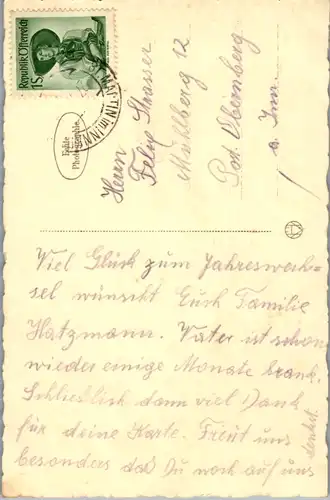 Republik Österreich
1S
MARTIN im INN
Echte
Photographie
Herrn
Felix Strasser
Mühlberg 12
Post Obernberg
a. Inn.
Viel Glück zum Jahreswech-
sel wünscht Euch Familie
Hatzmann. Vater ist schon
wieder einige Monate krank.
Schließlich dann viel Dank
für deine Karte. Freut uns
besonders daß Du noch auf uns
denkst.